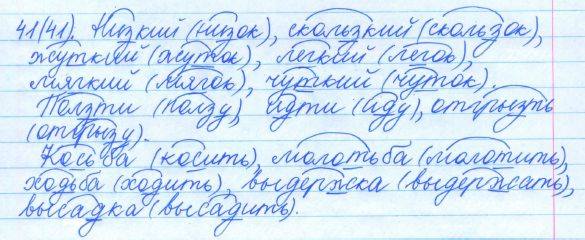 41(41). Низкий (низок), скользкий (скользок),
жуткий (жуток), легкий (легок),
мягкий (мягок), чуткий (чуток).
Ползти (ползу), идти (иду), отгрызть
(отгрызу).
Косьба (косить), молотьба (молотить),
ходьба (ходить), выдержка (выдержать),
высадка (высадить).